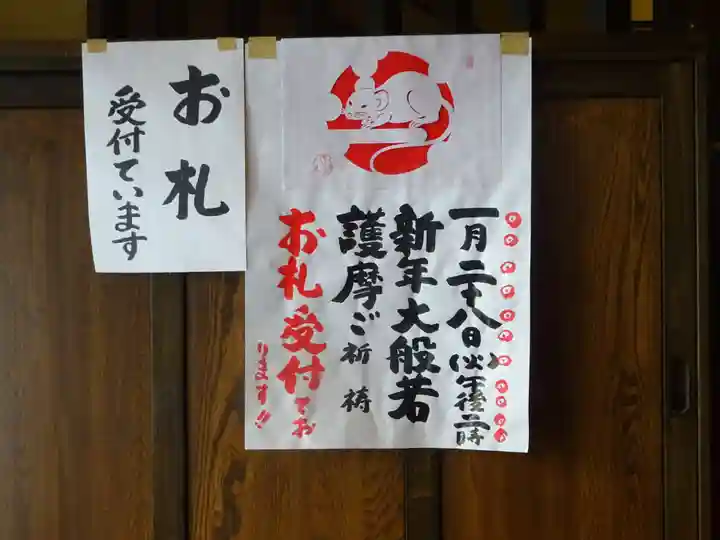 一月二十八日(火)午後二時
新年大般若
護摩ご祈祷
お札受付てお
ります!!
お札
受付ています